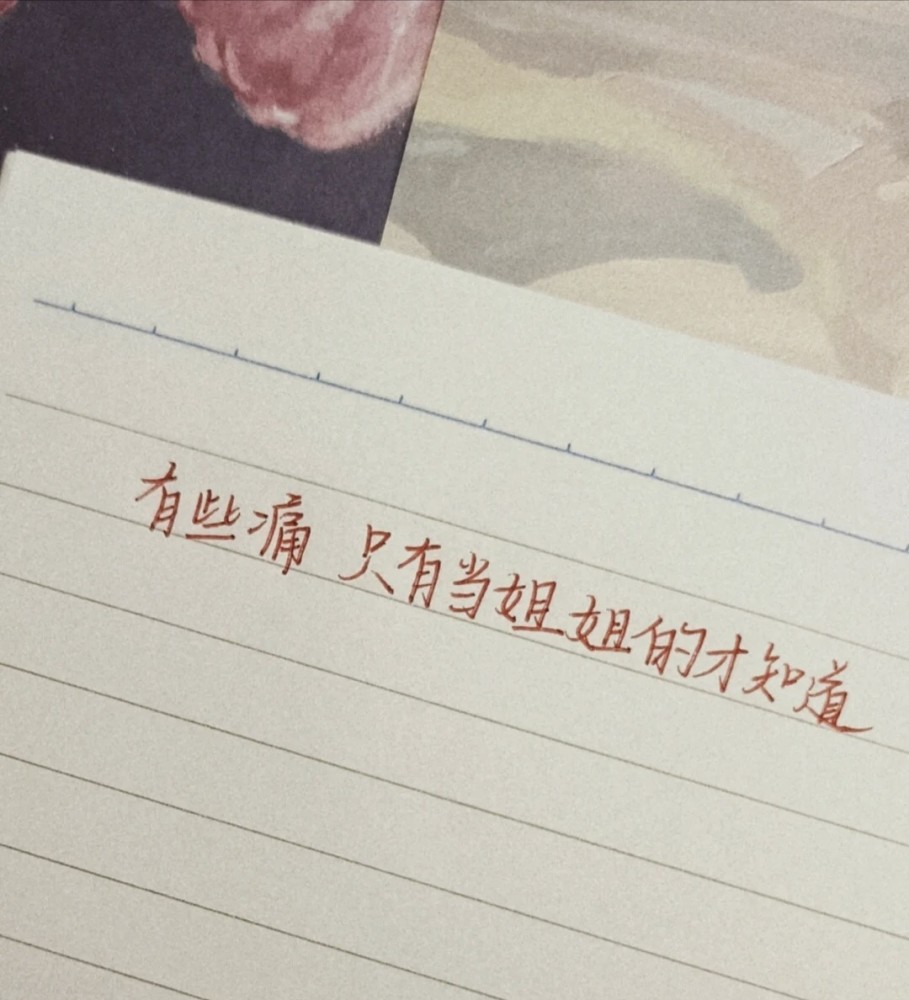 有些痛 只有当姐姐的才知道